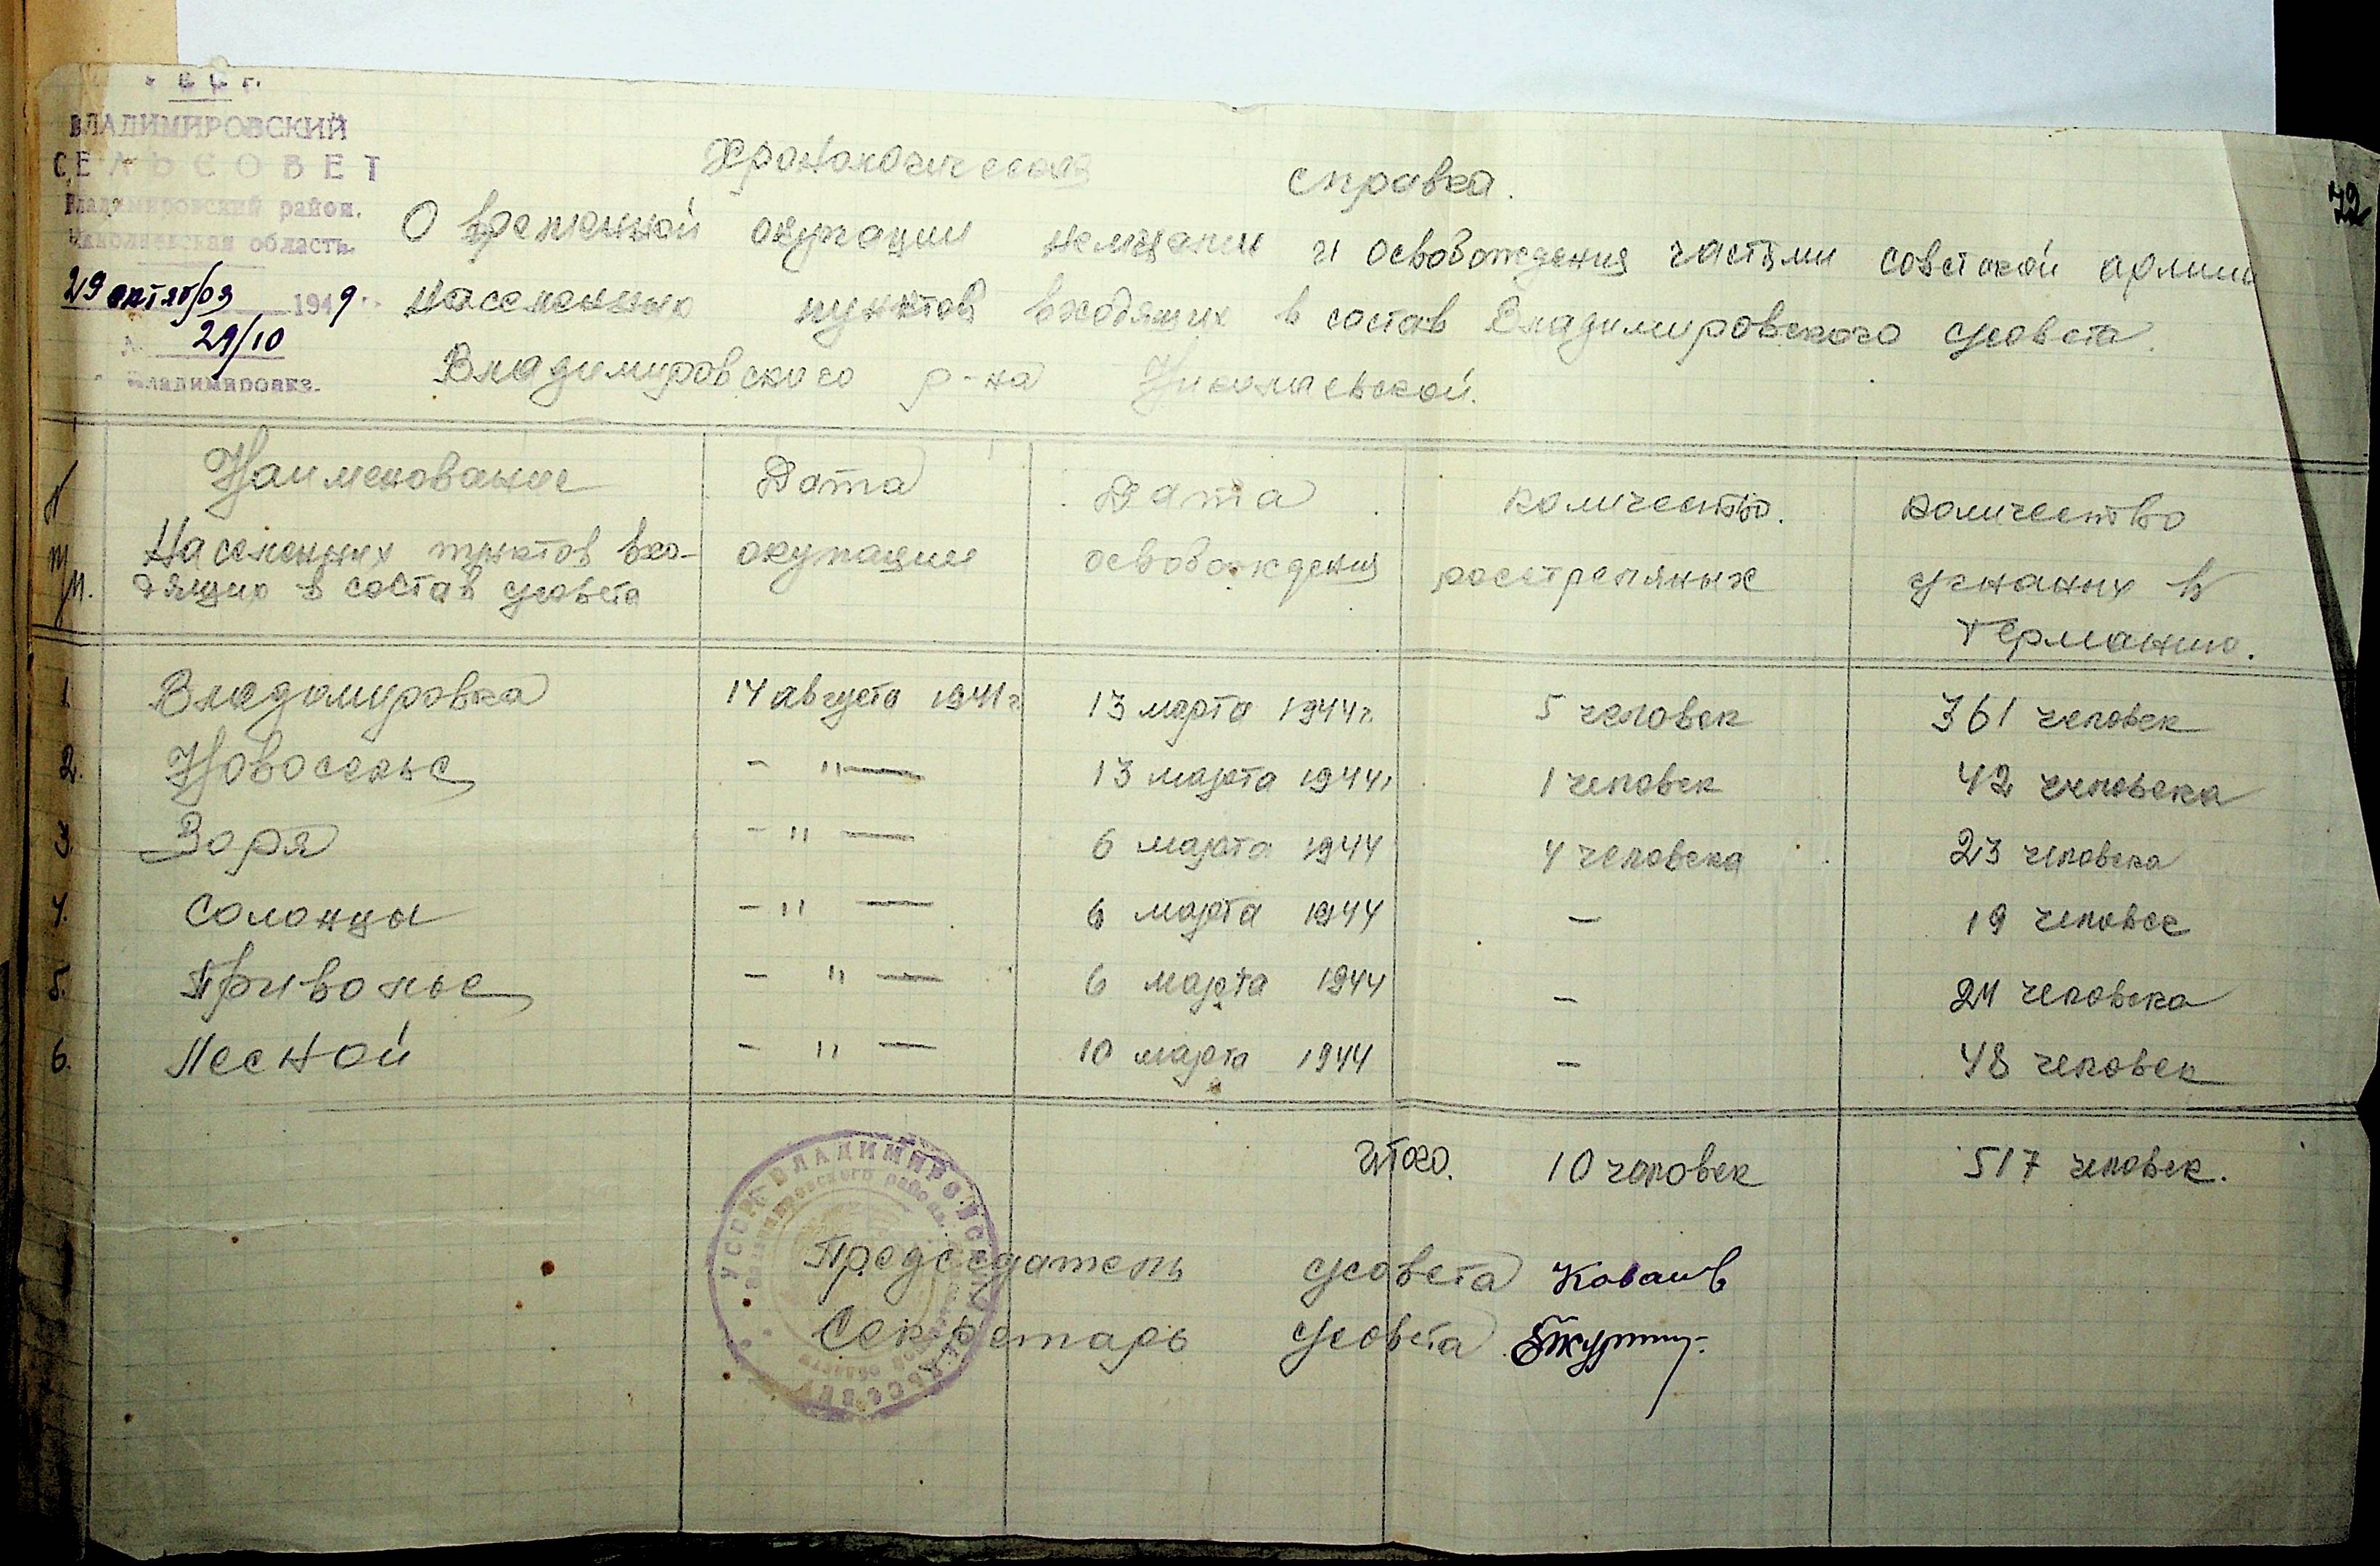 У С С Р.
ВЛАДИМИРОВСКИЙ
СЕЛЬСОВЕТ
Владимировский район.
Николаевская область.
29 октября 1949
29/10
Владимировка.
72
Хронологическая справка.
О временной окупации немцами и освобождения частями советской армии
населенных пунктов входящих в состав Владимировского с/совета
Владимировского р-на Николаевской.
N п/п. | Наименование Населенных пунктов вхо-дящих в состав с/совета | Дата окупации | Дата освобождения | количество. расстреляных | количество угнаных в Германию.
1. Владимировка 14 августа 1941 г. 13 марта 1944 г. 5 человек 361 человек
2. Новоселье - " — 13 марта 1944 г. 1 человек 42 человека
3. Заря - " — 6 марта 1944 4 человека 23 человека
4. Солонцы - " — 6 марта 1944 — 19 человек
5. Приволье - " — 6 марта 1944 — 24 человека
6. Лесной - " — 10 марта 1944 — 48 человек
Итого. 10 человек 517 человек.
Председатель с/совета
Секретарь с/совета
УССР ВЛАДИМИРОВСКИЙ СЕЛЬСОВЕТ
Владимировского района
области